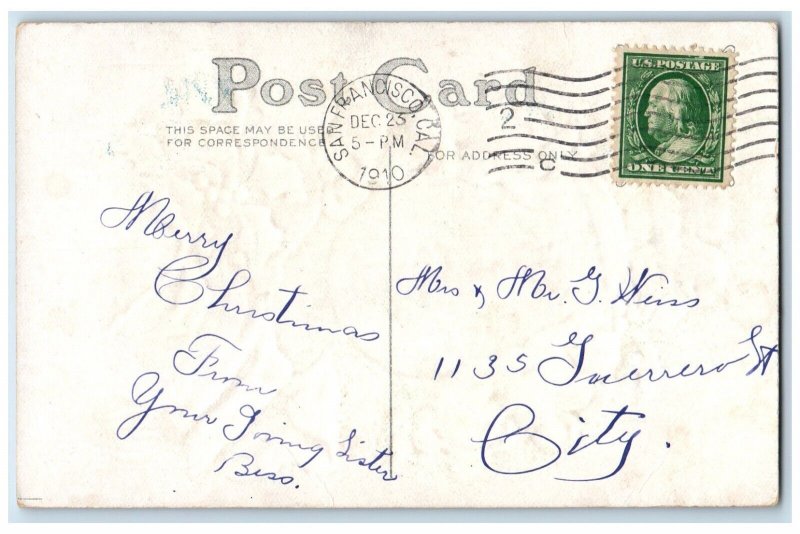 Post Card
THIS SPACE MAY BE USED
FOR CORRESPONDENCE
FOR ADDRESS ONLY
SAN FRANCISCO, CAL.
DEC 23
5-PM
1910
2
C
U.S. POSTAGE
ONE CENT
Merry
Christmas
From
Your Loving Sister
Bess.
Mrs & Mr. G. Weiss
1135 Guerrero St
City.